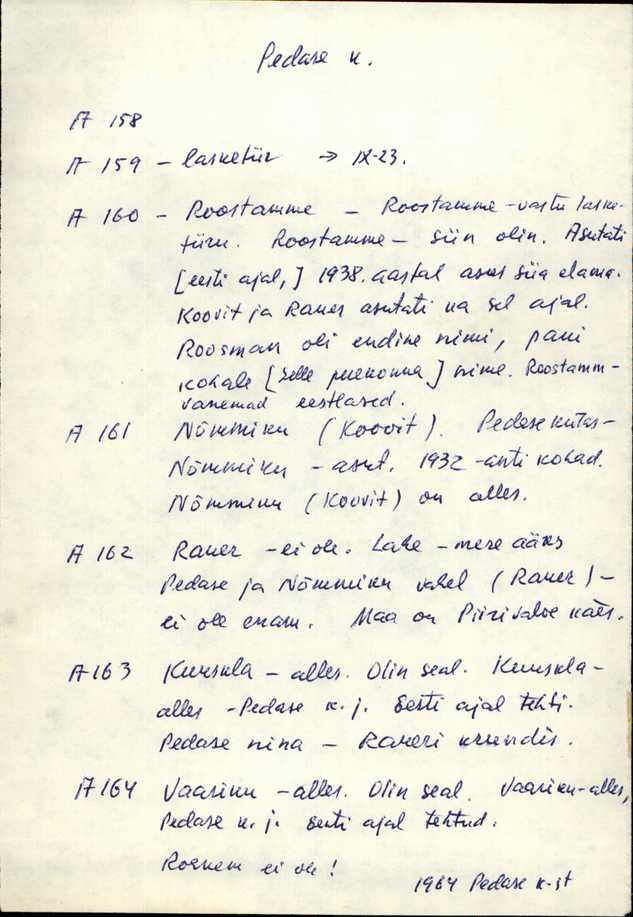 Pedase k.
A 158
A 159 – lasketiir → IX-23.
A 160 – Roostamme – Roostamme – vastu laske-
tiiru. Roostamme – siin olin. Asutati
[eesti ajal,] 1938. aastal asus siia elama.
Koovit ja Rauer asutati ka sel ajal.
Roosman oli endine nimi, pani
kohale [selle perekonna] nime. Roostamm-
vanemad eestlased.
A 161 Nõmmiku (Koovit). Pedase külas –
Nõmmiku – asut. 1932 – anti kohad.
Nõmmiku (Koovit) on alles.
A 162 Rauer – ei ole. Lahe – mere ääres
Pedase ja Nõmmiku vahel (Rauer) –
ei ole enam. Maa on Piirivalve käes.
A 163 Kuuskla – alles. Olin seal. Kuuskla –
alles – Pedase k. j. Eesti ajal tehti.
Pedase nina – Raueri krundis.
A 164 Vaariku – alles. Olin seal. Vaariku – alles,
Pedase k. j. Eesti ajal tehtud.
Rohkem ei ole!
1964 Pedase k-st